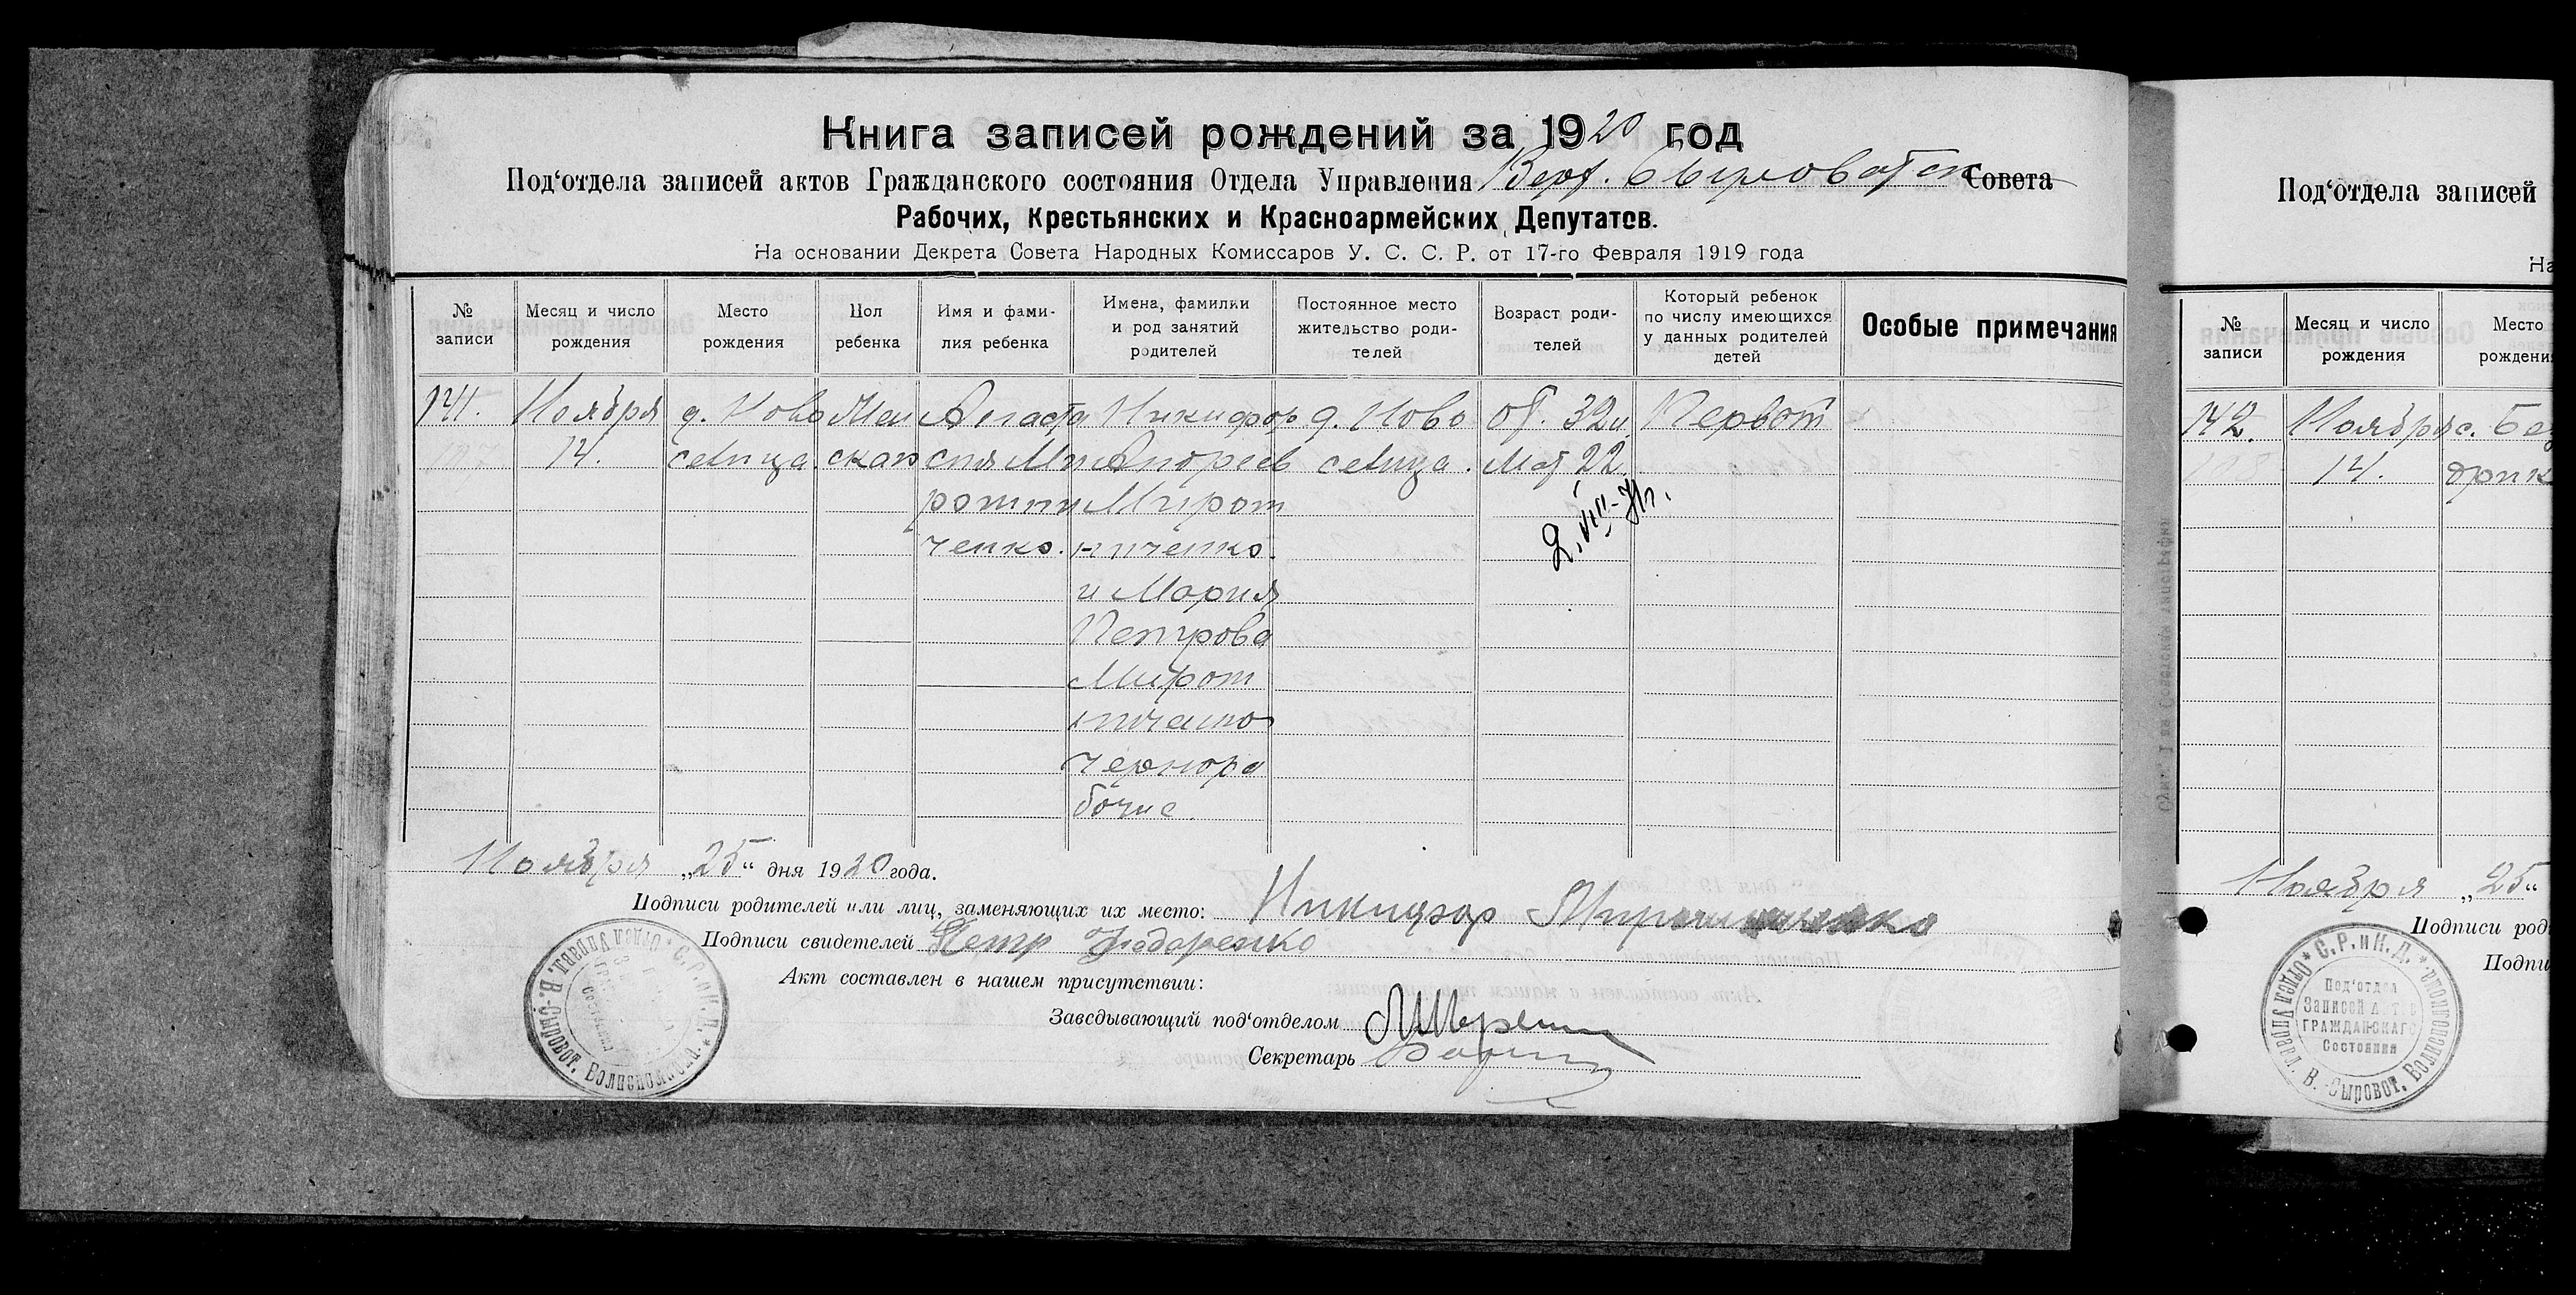 Книга записей рождений за 1920 год
Под‘отдела записей актов Гражданского состояния Отдела Управления Верх. Сыроватск Совета
Рабочих, Крестьянских и Красноармейских Депутатов.
На основании Декрета Совета Народных Комиссаров У. С. С. Р. от 17-го Февраля 1919 года
№ записи
Месяц и число рождения
Место рождения
Пол ребенка
Имя и фами-
лия ребенка
Имена, фамилии
и род занятий
родителей
Постоянное место
жительство роди-
телей
Возраст роди-
телей
Который ребенок
по числу имеющихся
у данных родителей
детей
Особые примечания
141. Ноября д. Ново Жен Анаста Никифор д. Ново от. 32 Первый
14. селица. ская сия Ми Андреев селица. мат 22.
рошни Мирош
ченко. ниченко.
и Мария
Петрова
Мирош
ниченко
чернора
бочие.
2.VIII-71г.
Ноября „25“ дня 1920 года.
Подписи родителей или лиц, заменяющих их место: Никифор Мирошниченко
Подписи свидетелей Петр
Акт составлен в нашем присутствии:
Заведывающий под‘отделом
Секретарь
* С. Р. и К. Д. * Отдел Управл. В.-Сыровот. Волисполкома.
Под‘отдела записей
На
№ записи
Месяц и число рождения
Место
рождени
142. Ноября с. Без
14. дрик
Ноября „25“
Подписи род
Подпи
* С. Р. и К. Д. * Отдел Управл. В.-Сыровот. Волисполкома.
Под‘отдел
Записей Актов
ГРАЖДАНСКАГО
Состояния